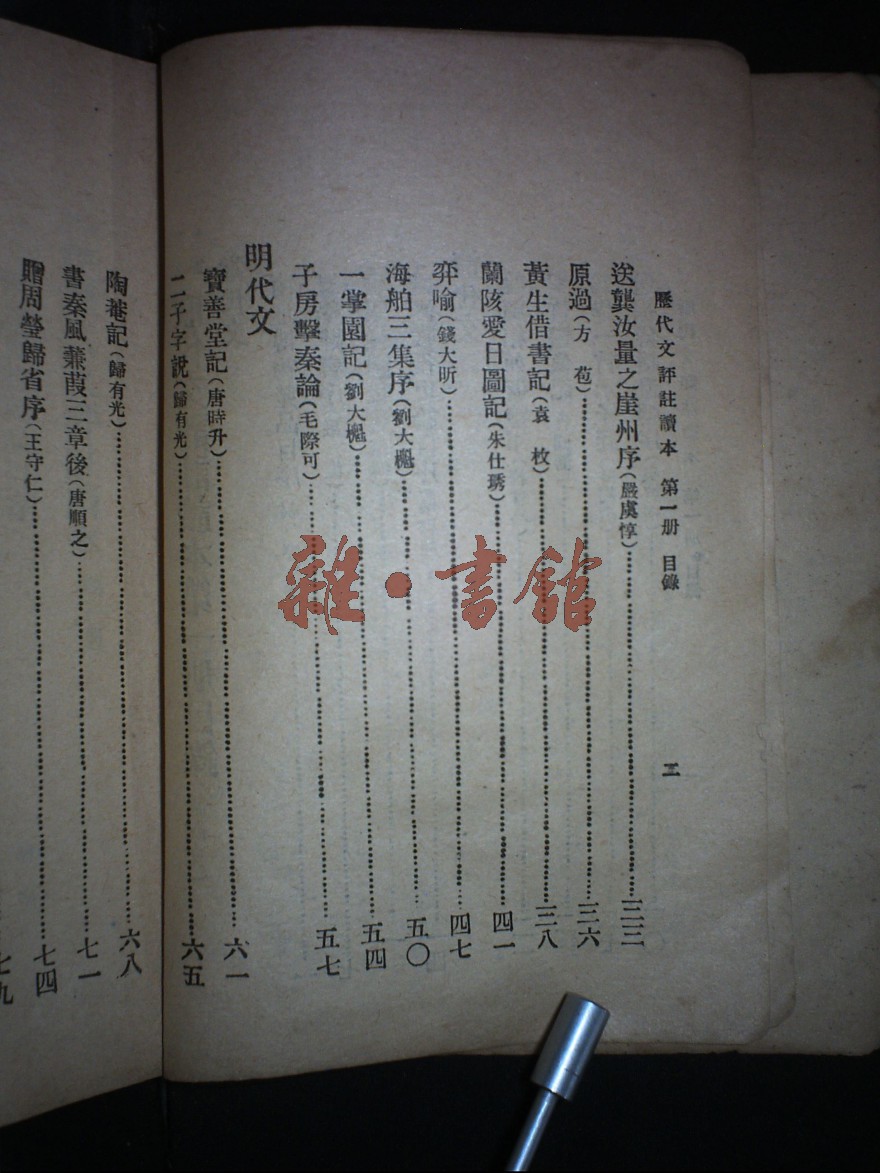 歷代文評註讀本　第一册　目錄　三
送龔汝量之崖州序(嚴虞惇)……三三
原過(方　苞)……三六
黃生借書記(袁　枚)……三八
蘭陔愛日圖記(朱仕琇)……四一
弈喻(錢大昕)……四七
海舶三集序(劉大櫆)……五〇
一掌園記(劉大櫆)……五四
子房擊秦論(毛際可)……五七
明代文
寶善堂記(唐時升)……六一
二子字說(歸有光)……六五
陶菴記(歸有光)……六八
書秦風蒹葭三章後(唐順之)……七一
贈周瑩歸省序(王守仁)……七四
七九
雜・書館